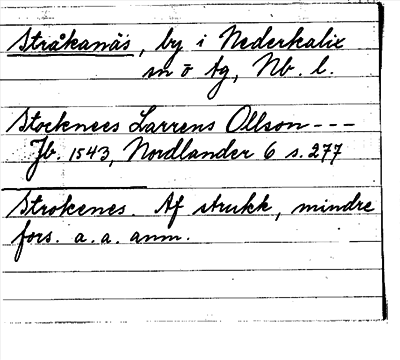 Stråkanäs, by i Nederkalix
sn o tg, Nb. l.
Stocknees Larrens Ollson ---
Jb. 1543, Nordlander 6 s. 277
Strokenes. Af strukk, mindre
fors. a. a. anm.